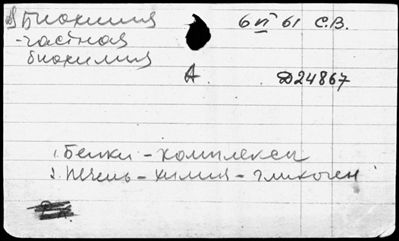 Биохимия 6 VI 61 С.В.
-частная
биохимия
А Д24867
1. Белки - комплексы
2. Печень - химия - гликоген